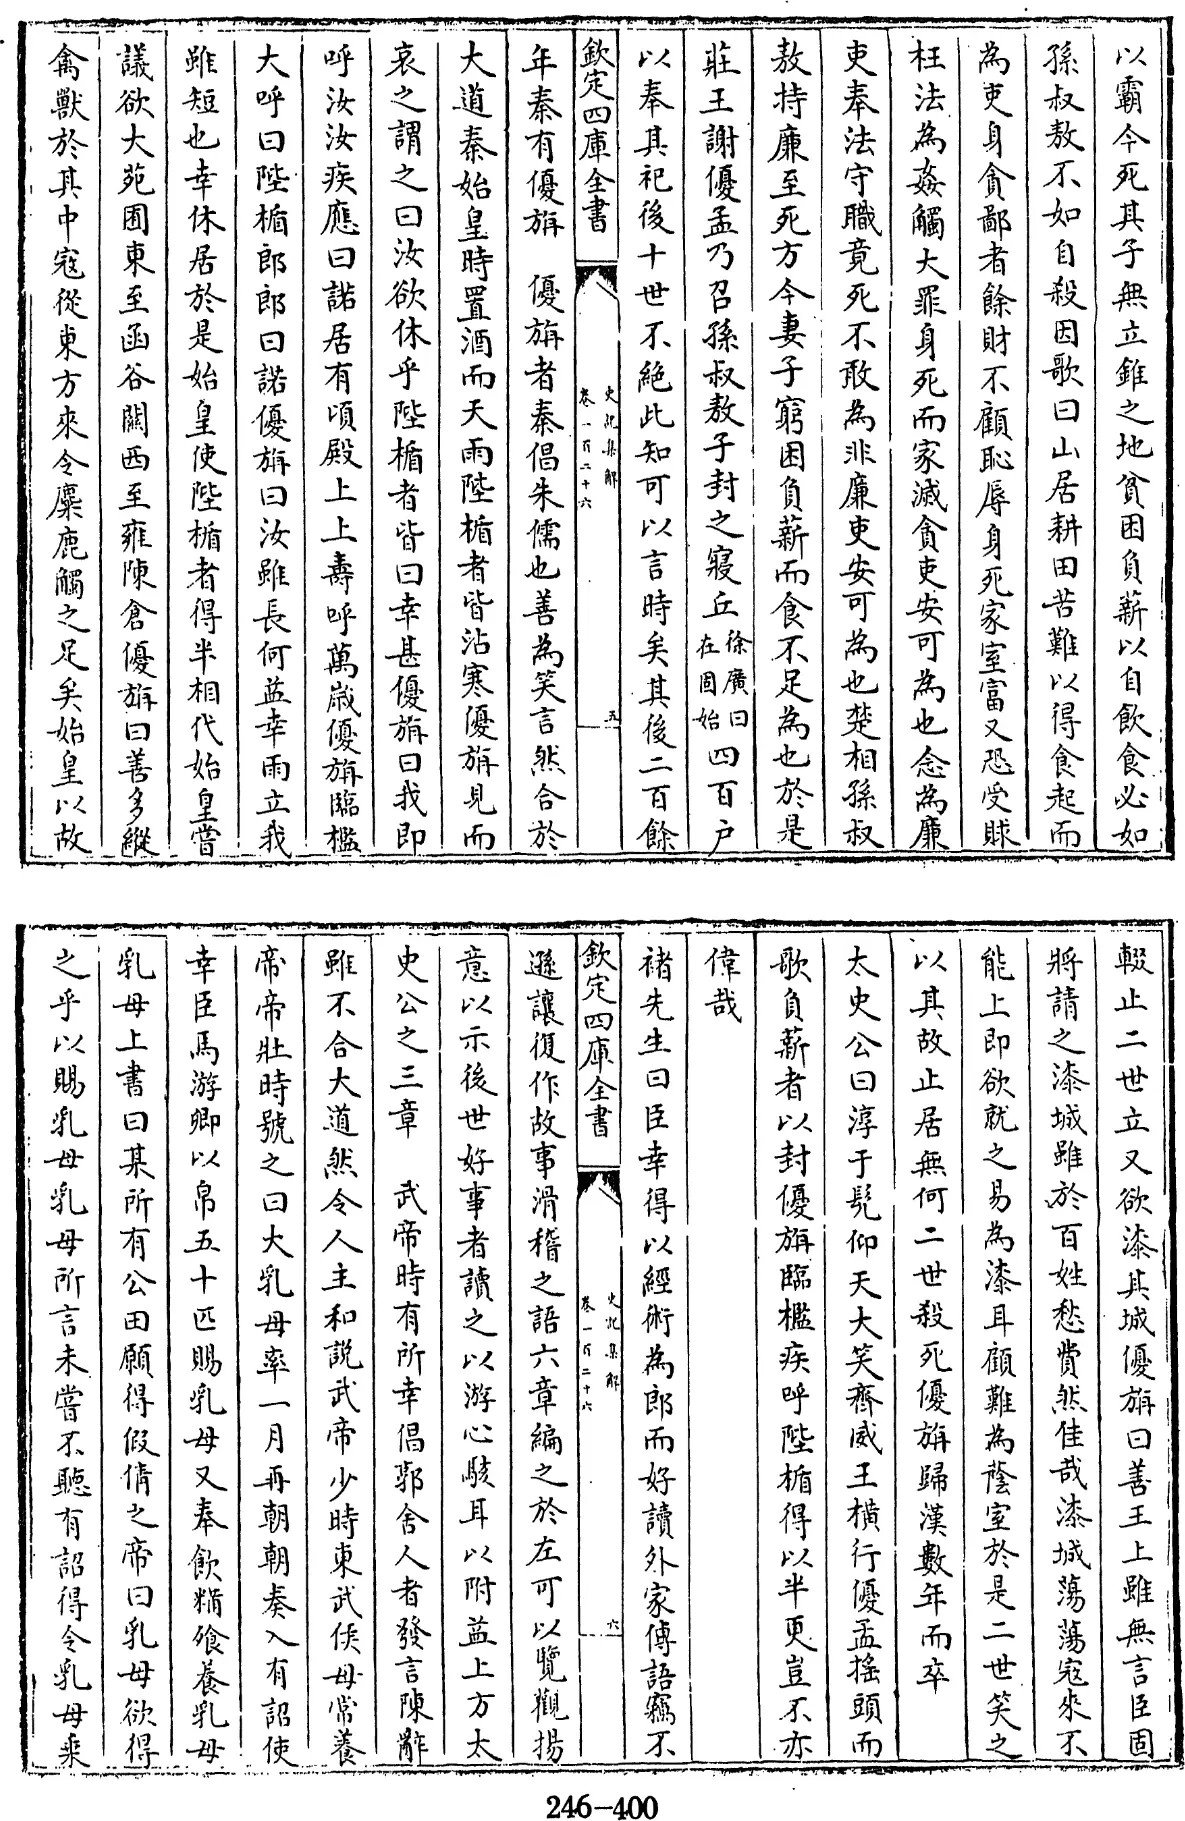 以霸今死其子無立錐之地貧困負薪以自飲食必如
孫叔敖不如自殺因歌曰山居耕田苦難以得食起而
為吏身貪鄙者餘財不顧恥辱身死家室富又恐受賕
枉法為姦觸大罪身死而家滅貪吏安可為也念為廉
吏奉法守職竟死不敢為非廉吏安可為也楚相孫叔
敖持廉至死方今妻子窮困負薪而食不足為也於是
莊王謝優孟乃召孫叔敖子封之寢丘徐廣曰在固始四百户
以奉其祀後十世不絕此知可以言時矣其後二百餘
欽定四庫全書
史記集解
卷一百二十六
五
年秦有優旃 優旃者秦倡朱儒也善為笑言然合於
大道秦始皇時置酒而天雨陛楯者皆沾寒優旃見而
哀之謂之曰汝欲休乎陛楯者皆曰幸甚優旃曰我即
呼汝汝疾應曰諾居有頃殿上上壽呼萬歲優旃臨檻
大呼曰陛楯郎郎曰諾優旃曰汝雖長何益幸雨立我
雖短也幸休居於是始皇使陛楯者得半相代始皇嘗
議欲大苑囿東至函谷關西至雍陳倉優旃曰善多縱
禽獸於其中寇從東方來令麋鹿觸之足矣始皇以故
輟止二世立又欲漆其城優旃曰善主上雖無言臣固
將請之漆城雖於百姓愁費然佳哉漆城蕩蕩寇來不
能上即欲就之易為漆耳顧難為蔭室於是二世笑之
以其故止居無何二世殺死優旃歸漢數年而卒
太史公曰淳于髡仰天大笑齊威王橫行優孟搖頭而
歌負薪者以封優旃臨檻疾呼陛楯得以半更豈不亦
偉哉
褚先生曰臣幸得以經術為郎而好讀外家傳語竊不
欽定四庫全書
史記集解
卷一百二十六
六
遜讓復作故事滑稽之語六章編之於左可以覽觀揚
意以示後世好事者讀之以游心駭耳以附益上方太
史公之三章 武帝時有所幸倡郭舍人者發言陳辭
雖不合大道然令人主和說武帝少時東武侯母常養
帝帝壯時號之曰大乳母率一月再朝朝奏入有詔使
幸臣馬游卿以帛五十匹賜乳母又奉飲糒飱養乳母
乳母上書曰某所有公田願得假倩之帝曰乳母欲得
之乎以賜乳母乳母所言未嘗不聽有詔得令乳母乘
246-400